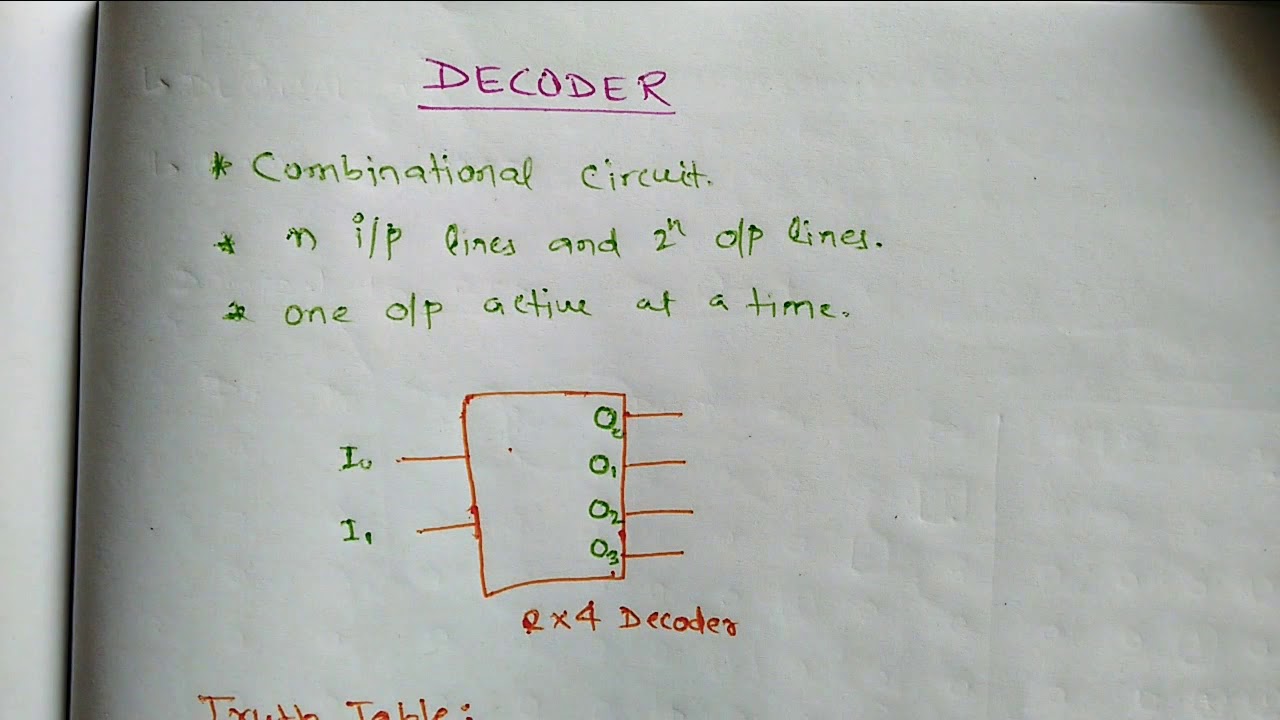 DECODER
* Combinational circuit.
* n i/p lines and 2ⁿ o/p lines.
* one o/p active at a time.
O₀
I₀
O₁
O₂
I₁
O₃
2x4 Decoder
Truth Table: